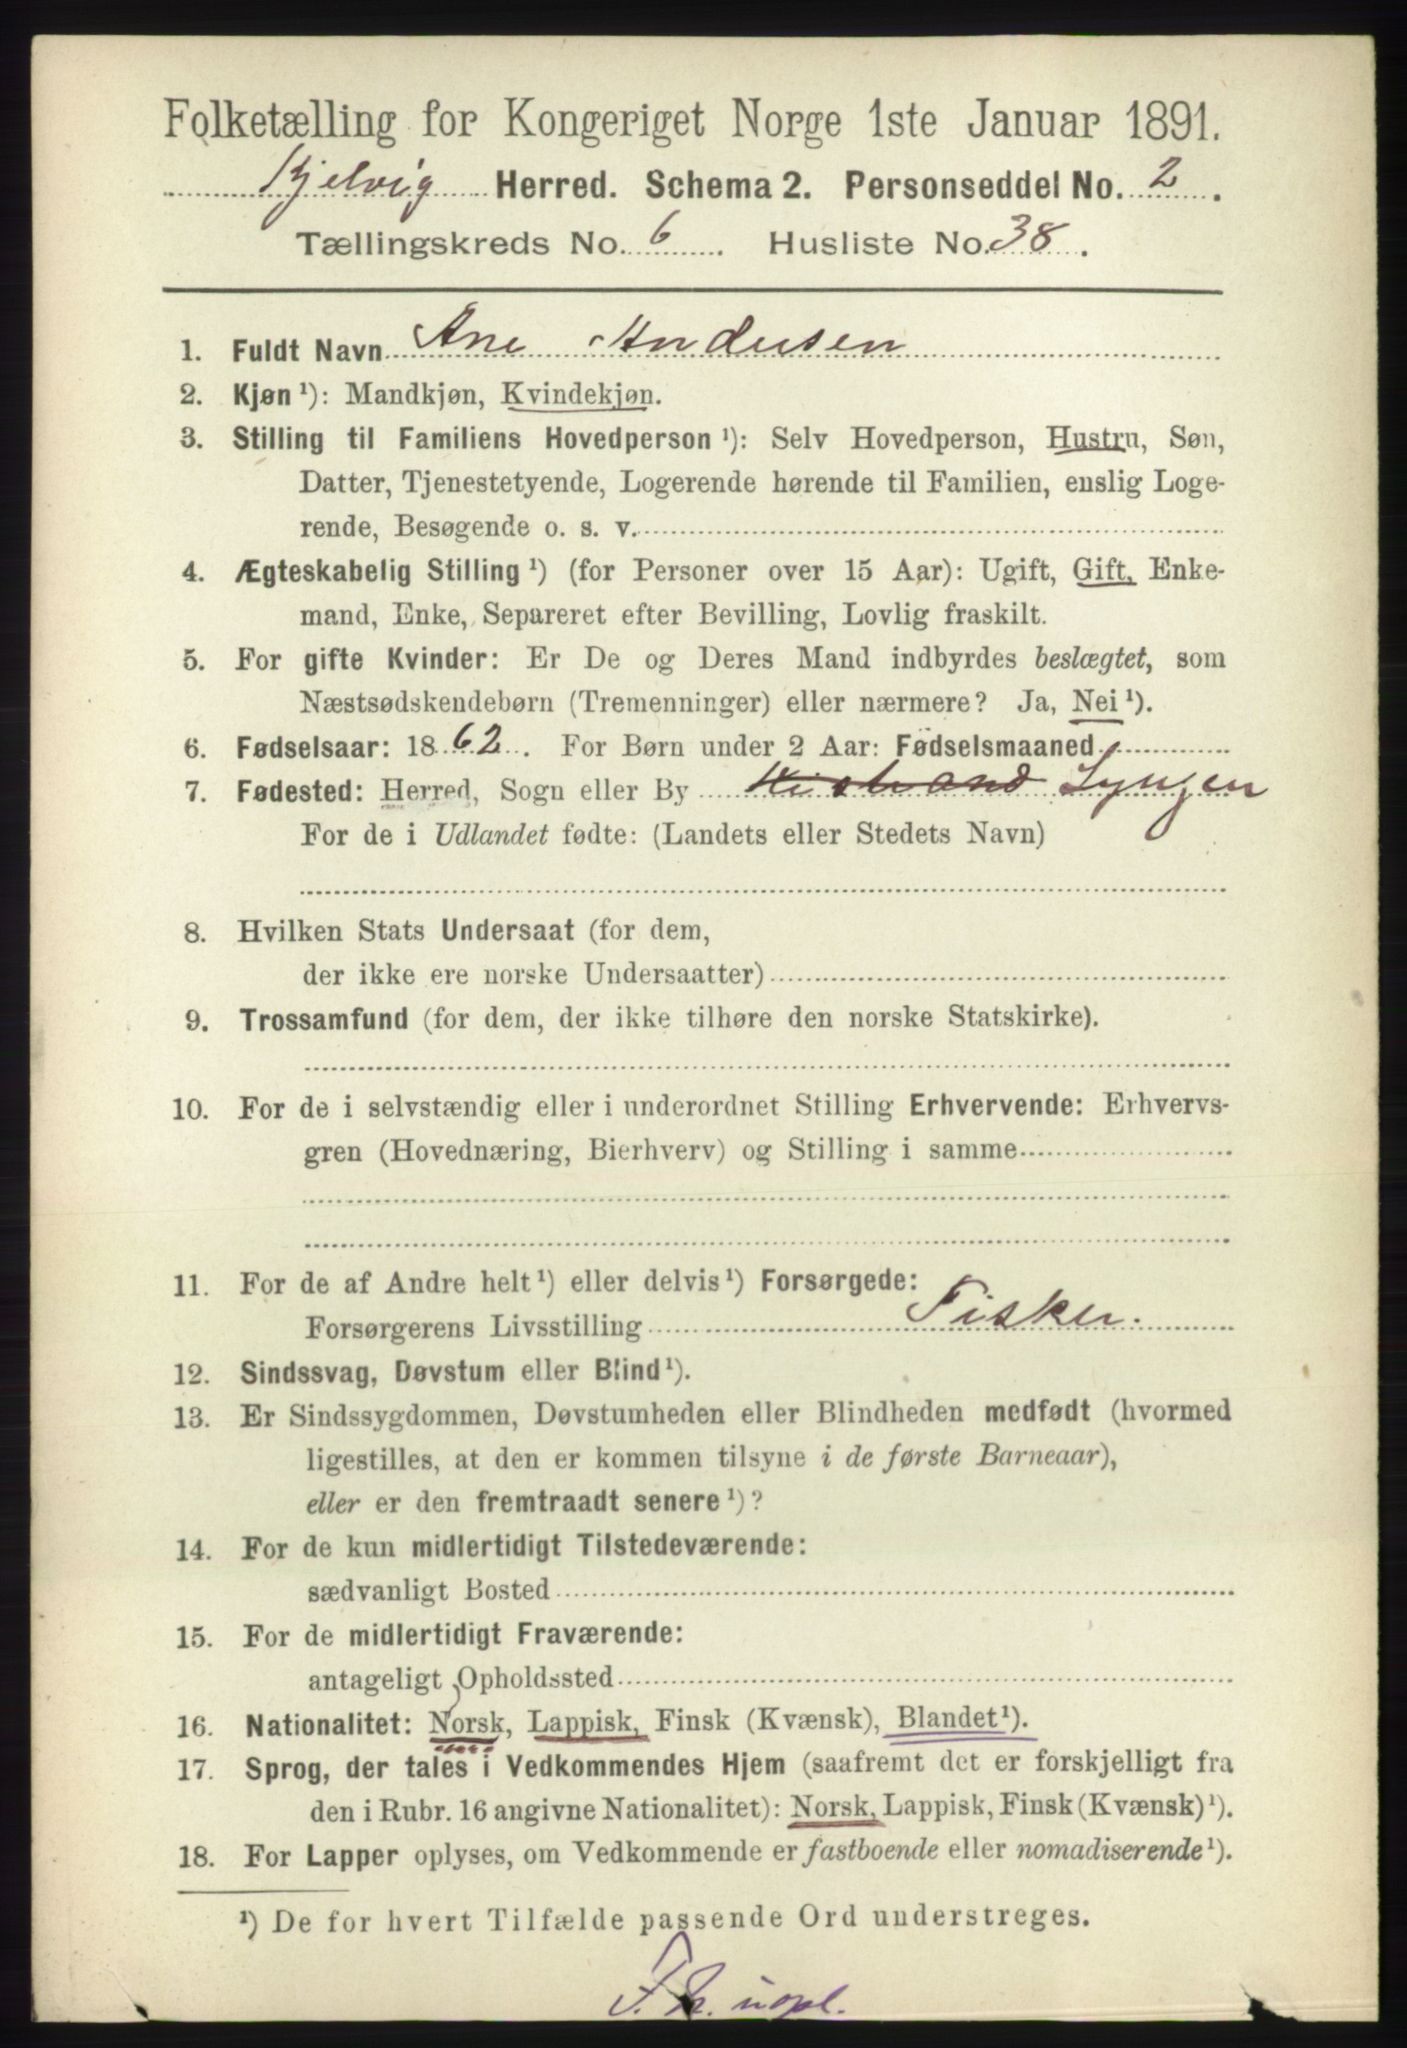 Folketælling for Kongeriget Norge 1ste Januar 1891.
Kjelvig Herred. Schema 2. Personseddel No. 2.
Tællingskreds No. 6. Husliste No. 38.
1. Fuldt Navn Ane Andersen
2. Kjøn ¹): Mandkjøn, Kvindekjøn.
3. Stilling til Familiens Hovedperson ¹): Selv Hovedperson, Hustru, Søn,
Datter, Tjenestetyende, Logerende hørende til Familien, enslig Loge-
rende, Besøgende o. s. v.
4. Ægteskabelig Stilling ¹) (for Personer over 15 Aar): Ugift, Gift, Enke-
mand, Enke, Separeret efter Bevilling, Lovlig fraskilt.
5. For gifte Kvinder: Er De og Deres Mand indbyrdes beslægtet, som
Næstsødskendebørn (Tremenninger) eller nærmere? Ja, Nei ¹).
6. Fødselsaar: 1862. For Børn under 2 Aar: Fødselsmaaned
7. Fødested: Herred, Sogn eller By Lyngen
For de i Udlandet fødte: (Landets eller Stedets Navn)
8. Hvilken Stats Undersaat (for dem,
der ikke ere norske Undersaatter)
9. Trossamfund (for dem, der ikke tilhøre den norske Statskirke).
10. For de i selvstændig eller i underordnet Stilling Erhvervende: Erhvervs-
gren (Hovednæring, Bierhverv) og Stilling i samme
11. For de af Andre helt ¹) eller delvis ¹) Forsørgede:
Forsørgerens Livsstilling Fisker.
12. Sindssvag, Døvstum eller Blind ¹).
13. Er Sindssygdommen, Døvstumheden eller Blindheden medfødt (hvormed
ligestilles, at den er kommen tilsyne i de første Barneaar),
eller er den fremtraadt senere ¹)?
14. For de kun midlertidigt Tilstedeværende:
sædvanligt Bosted
15. For de midlertidigt Fraværende:
antageligt Opholdssted
16. Nationalitet: Norsk, Lappisk, Finsk (Kvænsk), Blandet ¹).
17. Sprog, der tales i Vedkommendes Hjem (saafremt det er forskjelligt fra
den i Rubr. 16 angivne Nationalitet): Norsk, Lappisk, Finsk (Kvænsk) ¹).
18. For Lapper oplyses, om Vedkommende er fastboende eller nomadiserende ¹).
¹) De for hvert Tilfælde passende Ord understreges.
uopl.